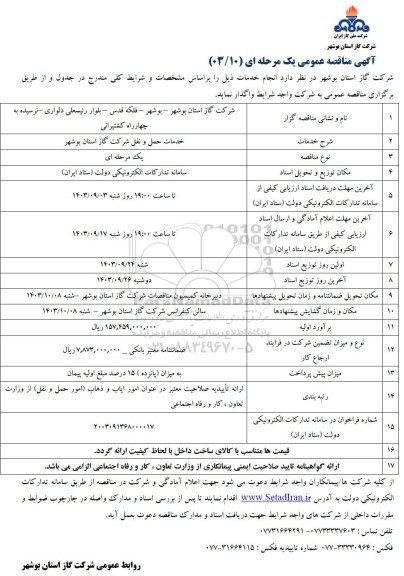 شرکت ملی گاز ایران
شرکت گاز استان بوشهر
آگهی مناقصه عمومی یک مرحله ای (۰۳/۱۰)
شرکت گاز استان بوشهر در نظر دارد انجام خدمات ذیل را براساس مشخصات و شرایط کلی مندرج در جدول و از طریق
برگزاری مناقصه عمومی به شرکت واجد شرایط واگذار نماید.
۱ نام و نشانی مناقصه گزار شرکت گاز استان بوشهر – بوشهر – فلکه قدس – بلوار رئیسعلی دلواری –نرسیده به
چهارراه کشتیرانی
۲ شرح خدمات خدمات حمل و نقل شرکت گاز استان بوشهر
۳ نوع مناقصه یک مرحله ای
۴ مکان توزیع و تحویل اسناد سامانه تدارکات الکترونیکی دولت (ستاد ایران)
۵ آخرین مهلت دریافت اسناد ارزیابی کیفی از
سامانه تدارکات الکترونیکی دولت (ستاد ایران) تا ساعت ۱۹:۰۰ روز شنبه ۱۴۰۳/۰۹/۰۳
۶ آخرین مهلت اعلام آمادگی و ارسال اسناد
ارزیابی کیفی از طریق سامانه تدارکات
الکترونیکی دولت (ستاد ایران) تا ساعت ۱۹:۰۰ روز شنبه ۱۴۰۳/۰۹/۱۷
۷ اولین روز توزیع اسناد شنبه ۱۴۰۳/۰۹/۲۴
۸ آخرین روز توزیع اسناد دوشنبه ۱۴۰۳/۰۹/۲۶
۹ مکان تحویل ضمانتنامه و زمان تحویل پیشنهادها دبیرخانه کمیسیون مناقصات شرکت گاز استان بوشهر –شنبه ۱۴۰۳/۱۰/۰۸
۱۰ مکان و زمان گشایش پیشنهادها سالن کنفرانس شرکت گاز استان بوشهر – شنبه ۱۴۰۳/۱۰/۰۸
۱۱ برآورد اولیه ۱۵۷,۴۵۹,۰۰۰,۰۰۰ ریال
۱۲ نوع و میزان تضمین شرکت در فرایند
ارجاع کار ضمانتنامه معتبر بانکی _ ۷,۸۷۳,۰۰۰,۰۰۰ ریال
۱۳ میزان پیش پرداخت به میزان (پانزده) ۱۵ درصد مبلغ اولیه پیمان
۱۴ رتبه بندی ارائه تأییدیه صلاحیت معتبر در عنوان امور ایاب و ذهاب (امور حمل و نقل) از وزارت
تعاون ، کار و رفاه اجتماعی
۱۵ شماره فراخوان در سامانه تدارکات الکترونیکی
دولت (ستاد ایران) ۲۰۰۳۰۹۱۳۶۸۰۰۰۰۱۷
۱۶ قیمت ها متناسب با کالای ساخت داخل با لحاظ کیفیت ارائه گردد.
۱۷ ارائه گواهینامه تایید صلاحیت ایمنی پیمانکاری از وزارت تعاون ، کار و رفاه اجتماعی الزامی می باشد.
از کلیه شرکت ها/پیمانکاران واجد شرایط دعوت می شود جهت اعلام آمادگی و شرکت در مناقصه از طریق سامانه تدارکات
الکترونیکی دولت به آدرس www.SetadIran.ir اقدام نمایند تا پس از بررسی اسناد و مدارک واصله در چارچوب ضوابط و
مقررات داخلی از شرکت های واجد شرایط جهت دریافت اسناد و مدارک مناقصه دعوت بعمل آید.
تلفن تماس : ۰۷۷۳۳۳۳۷۶۰۳- ۰۷۷۳۱۶۶۴۲۹۱
فکس : ۳۳۳۳۰۹۶۴-۰۷۷ شماره تاییدیه فکس : ۳۱۶۶۴۱۱۵-۰۷۷
روابط عمومی شرکت گاز استان بوشهر